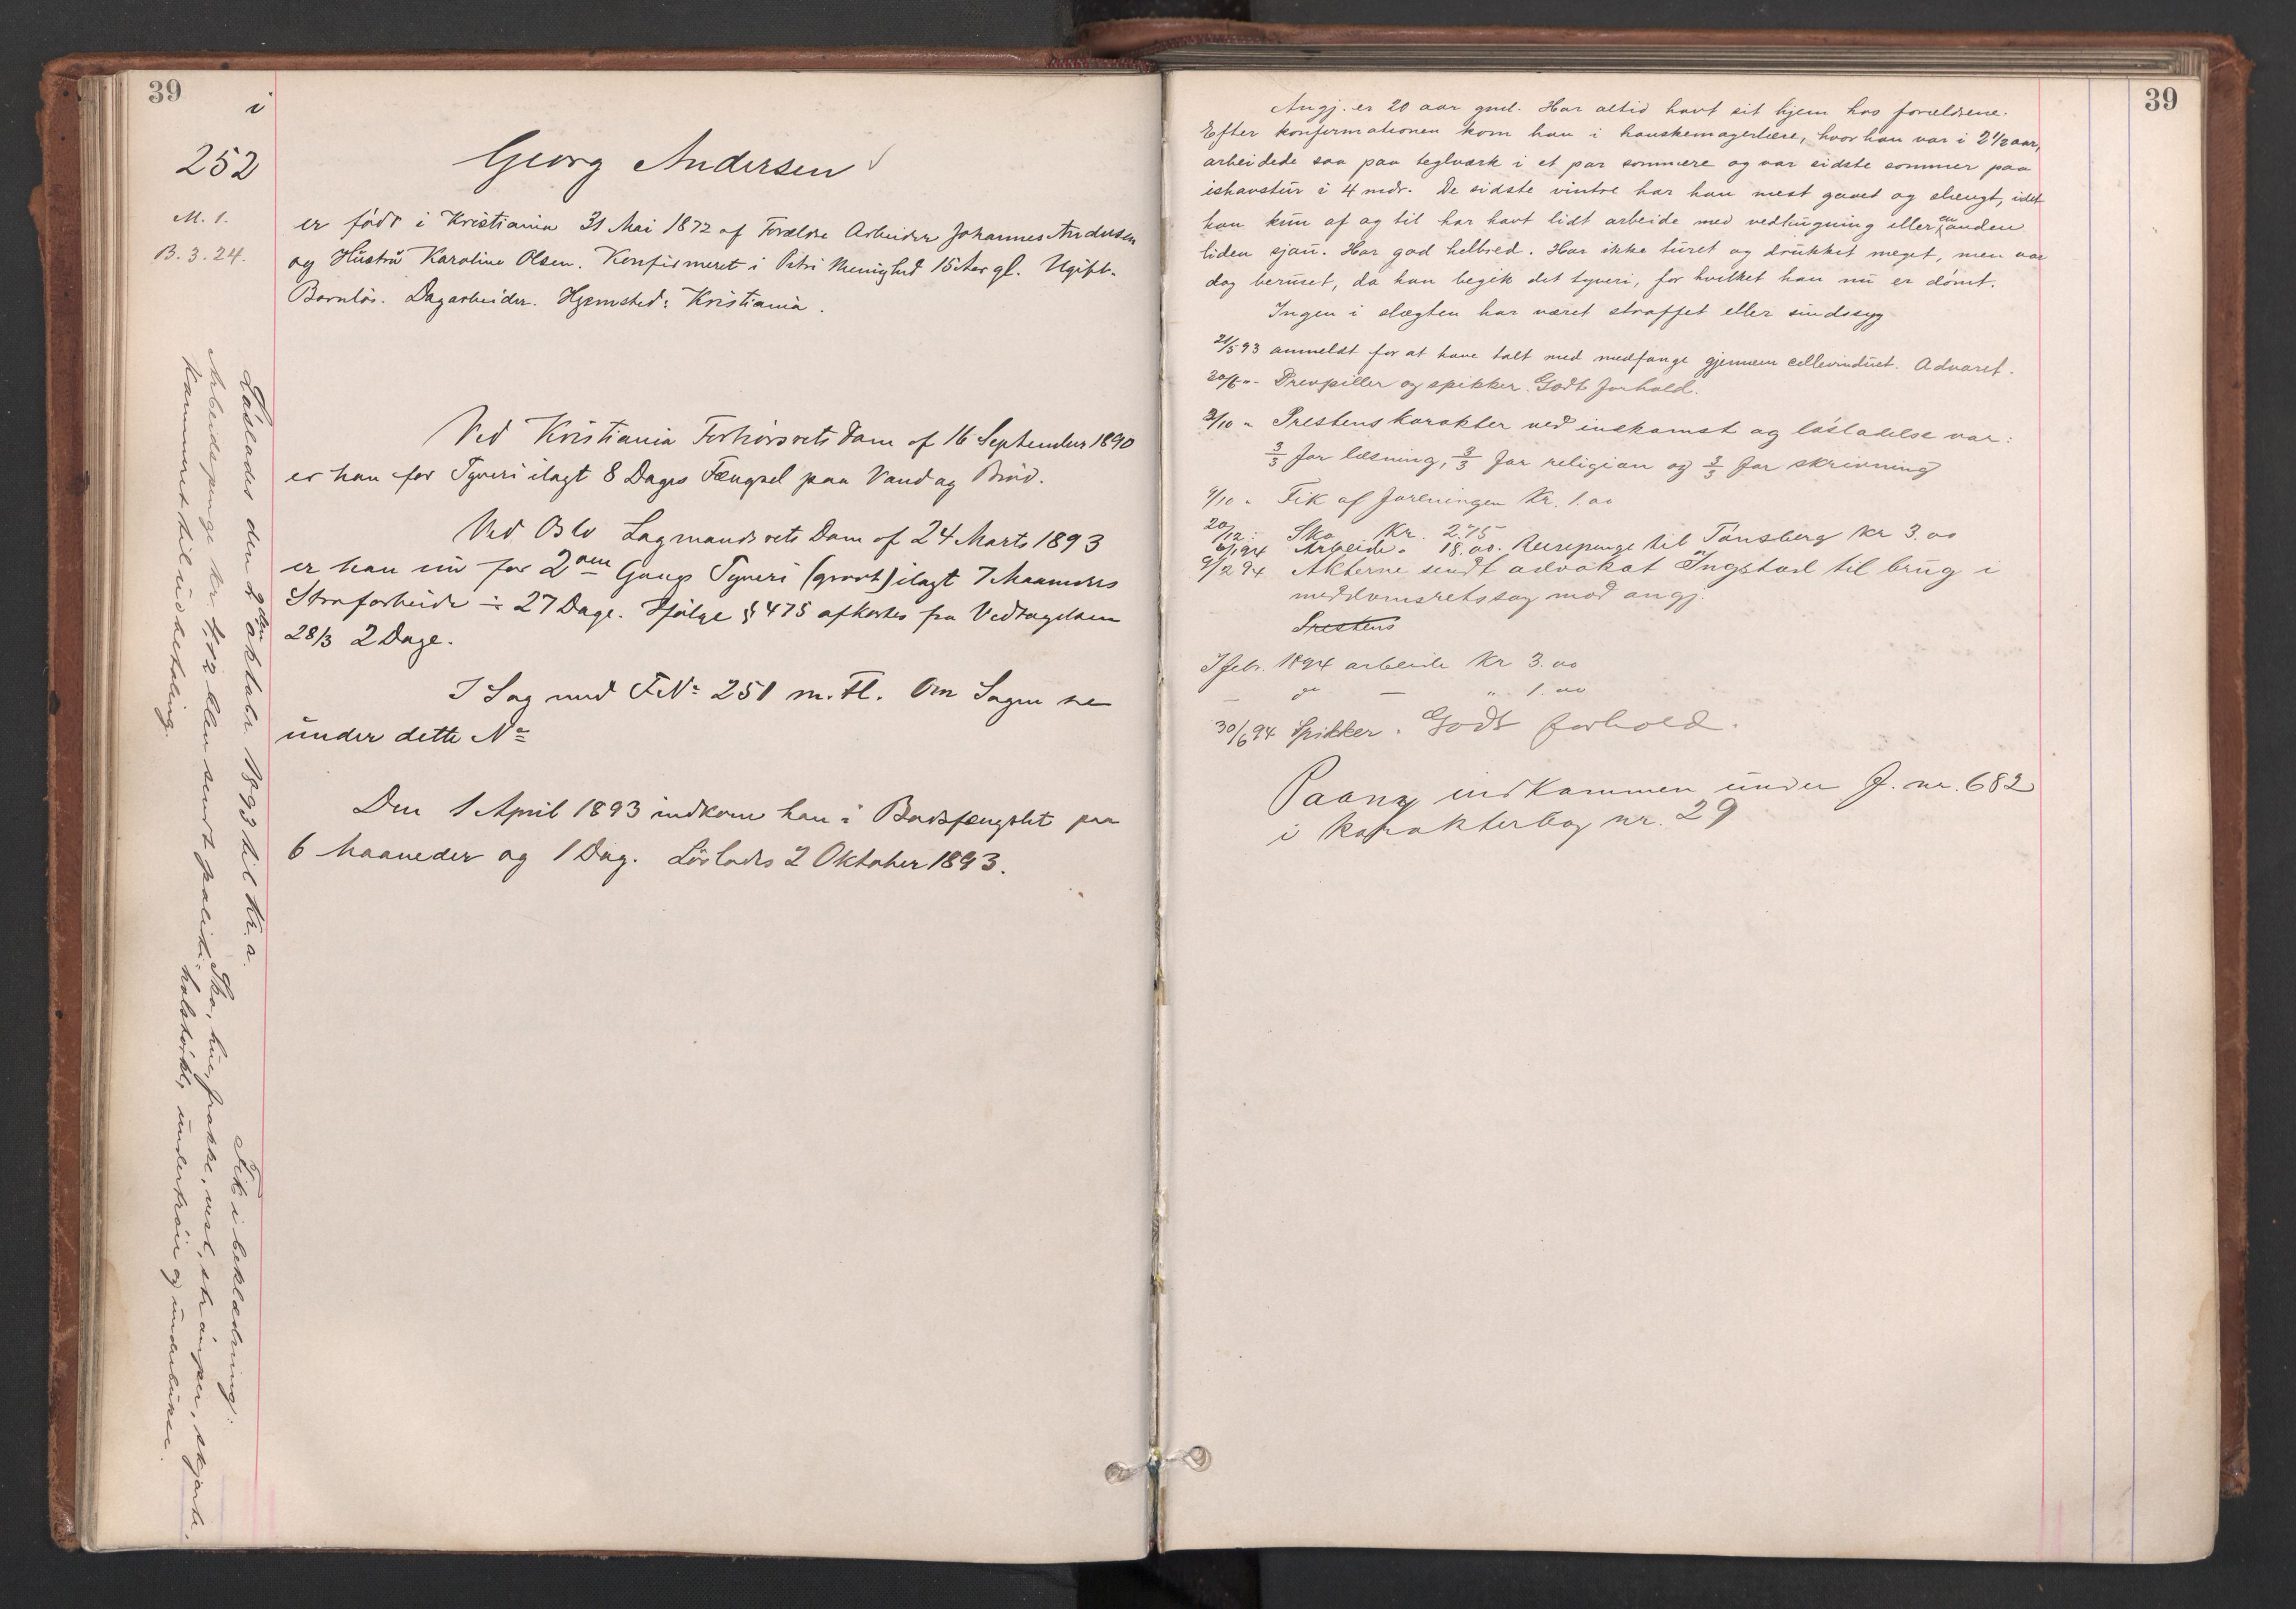 39
i
252
M. 1.
B. 3. 24.
Georg Andersen
er född i Kristiania 31 Mai 1872 af Forældre Arbeider Johannes Andersen
og Hustru Karoline Olsen. Konfirmeret i Petri Menighed 15 Aar gl. Ugift.
Barnlös. Dagarbeider. Hjemsted: Kristiania.
Ved Kristiania Forhörsrets Dom af 16 September 1890
er han for Tyveri ilagt 8 Dages Fængsel paa Vand og Bröd.
Ved Oslo Lagmandsrets Dom af 24 Marts 1893
er han nu for 2den Gangs Tyveri (grovt) ilagt 7 Maaneders
Strafarbeide ÷ 27 Dage. Ifölge § 475 afkortes fra Vedtagelsen
28/3 2 Dage.
I Sag med F.No 251 m. Fl. Om Sagen se
under dette No
Den 1 April 1893 indkom han i Bodsfængslet paa
6 Maaneder og 1 Dag. Löslades 2 Oktober 1893.
Löslades den 2den oktober 1893 til Kr.a.
Arbeidspenge kr. blev sendt politi-
kammeret til udbetaling.
Fik i beklædning:
Sko, hue, frakke, vest, strömper, skjorte,
halstörklæ, undertröie og underbukse.
39
Angj. er 20 aar gml. Har altid havt sit hjem hos forældrene.
Efter konfirmationen kom han i hanskemagerlære, hvor han var i 2 1/2 aar,
arbeidede saa paa teglværk i et par sommere og var sidste sommer paa
ishavstur i 4 mdr. De sidste vintre har han mest gaaet og slængt, idet
han kun af og til har havt lidt arbeide med vedhugning eller en anden
liden sjau. Har god helbred. Har ikke turet og drukket meget, men var
dog beruset, da han begik det tyveri, for hvilket han nu er dömt.
Ingen i slægten har været straffet eller sindssyg
21/5 93 anmeldt for at have talt med medfange gjennem cellevinduet. Advaret.
30/6 " - Drevpiller og spikker. Godt forhold.
2/10 " Prestens karakter ved indkomst og lösladelse var:
3/3 for læsning, 3/3 for religion og 3/3 for skrivning
4/10 " Fik af foreningen Kr. 1.00
20/12 : Sko Kr. 2.75
6/1 94 Arbeide " 18.00. Reisepenge til Tönsberg kr 3.00
9/2 94 Akterne sendt advokat Ingstad til brug i
meddomsretssag mod angj.
Prestens
I febr. 1894 arbeide Kr 3.00
— " — " 1.00
30/6 94 Spikker. Godt forhold.
Paany indkommen under F. nr. 682
i karakterbog nr. 29